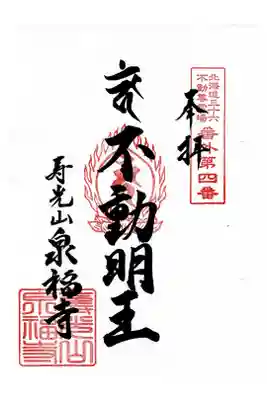 北海道三十六
不動尊霊場
番外第四番
奉拝
不動明王
寿光山泉福寺